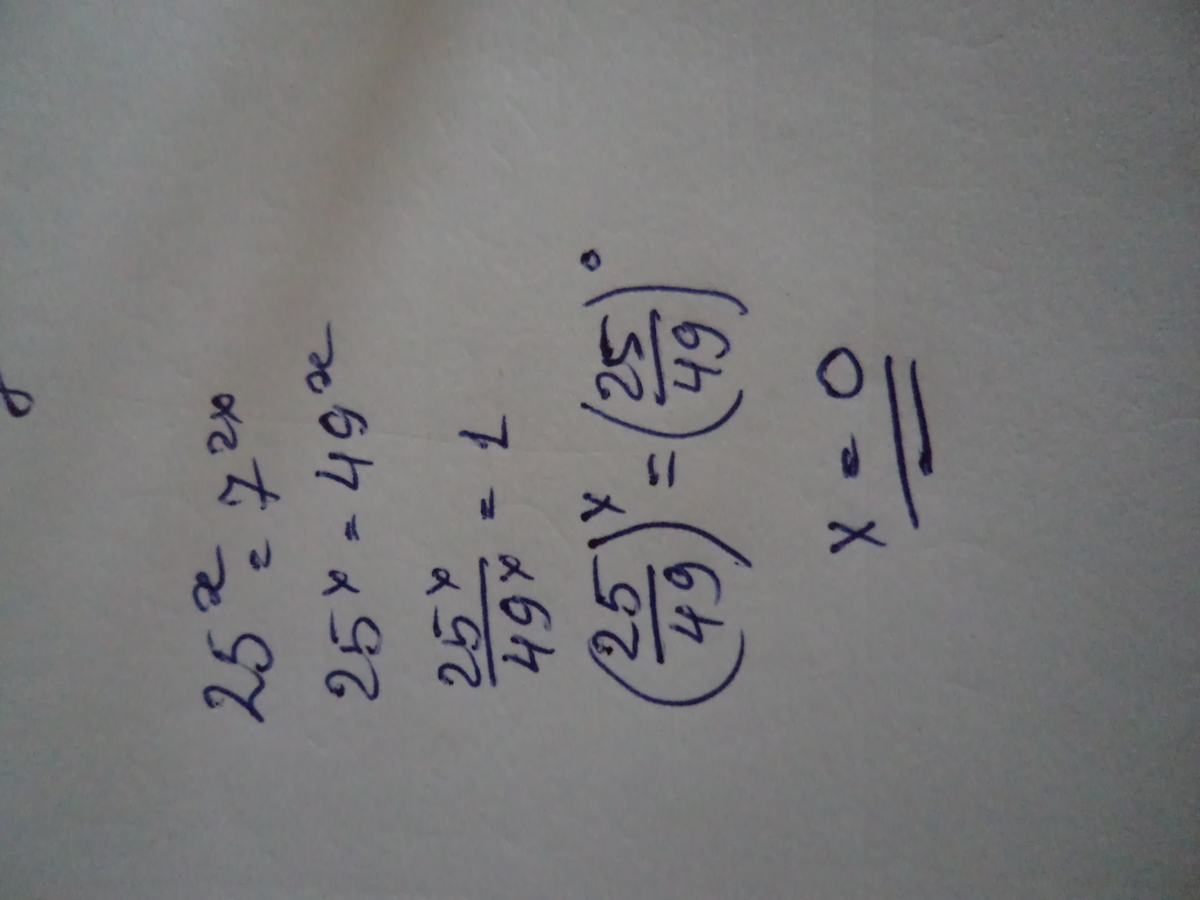 25ˣ = 7²ˣ
25ˣ = 49ˣ
25ˣ/49ˣ = 1
(25/49)ˣ = (25/49)⁰
x = 0